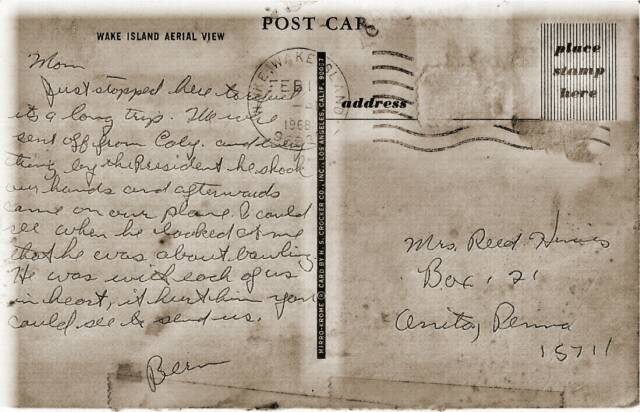 POST CAR
WAKE ISLAND AERIAL VIEW
place
stamp
here
address
WAKE ISLAND
FEB 1
1968
Mom
Just stopped here to
its a long trip. We were
sent off from Caly. and every
thing by the President he shook
our hands and afterwards
came on our plane I could
see when he looked at me
that he was about bawling
He was with each of us
in heart, it hurt him you
could see to send us.
Bern
MIRRO-KROME © CARD BY H. S. CROCKER CO., INC., LOS ANGELES, CALIF. 90017
Mrs. Reed
Box 71
Anita, Penna
15711